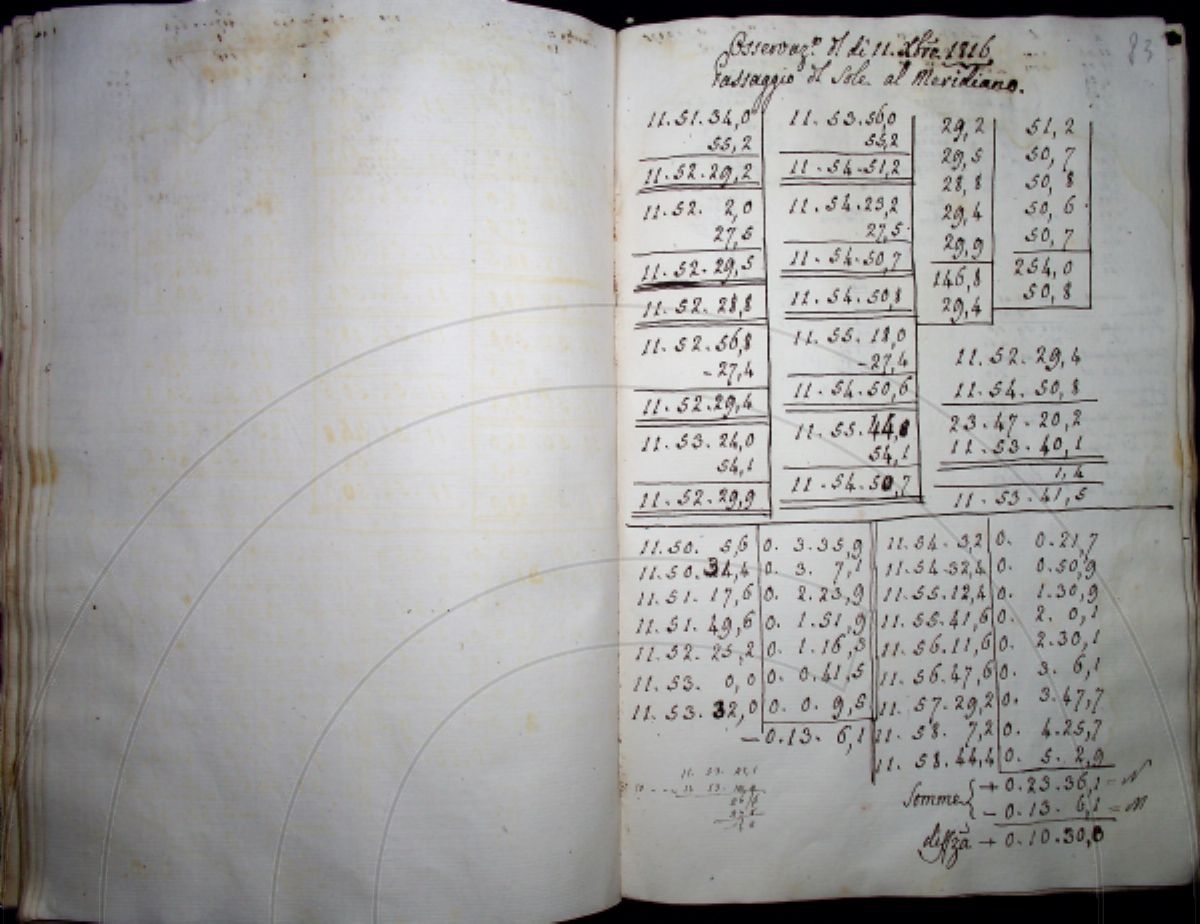 83
Osservaz.e del dì 11. Xbre. 1816
Passaggio del Sole al Meridiano.
11.51.34,0
55,2
11.52.29,2
11.52. 2,0
27,5
11.52.29,5
11.52.28,8
11.52.56,8
-27,4
11.52.29,4
11.53.24,0
54,1
11.52.29,9
11.53.56,0
55,2
11.54.51,2
11.54.23,2
27,5
11.54.50,7
11.54.50,8
11.55.18,0
-27,4
11.54.50,6
11.55.44,8
54,1
11.54.50,7
29,2
29,5
28,8
29,4
29,9
146,8
29,4
51,2
50,7
50,8
50,6
50,7
254,0
50,8
11.52.29,4
11.54.50,8
23.47.20,2
11.53.40,1
1,4
11.53.41,5
11.50. 5,6 0. 3.35,9
11.50.34,4 0. 3. 7,1
11.51.17,6 0. 2.23,9
11.51.49,6 0. 1.51,9
11.52.25,2 0. 1.16,3
11.53. 0,0 0. 0.41,5
11.53.32,0 0. 0. 9,5
-0.13. 6,1
11.54. 3,2 0. 0.21,7
11.54.32,4 0. 0.50,9
11.55.12,4 0. 1.30,9
11.55.41,6 0. 2. 0,1
11.56.11,6 0. 2.30,1
11.56.47,6 0. 3. 6,1
11.57.29,2 0. 3.47,7
11.58. 7,2 0. 4.25,7
11.58.44,4 0. 5. 2,9
Somme + 0.23.36,1 = N
- 0.13. 6,1 = M
diffza + 0.10.30,0